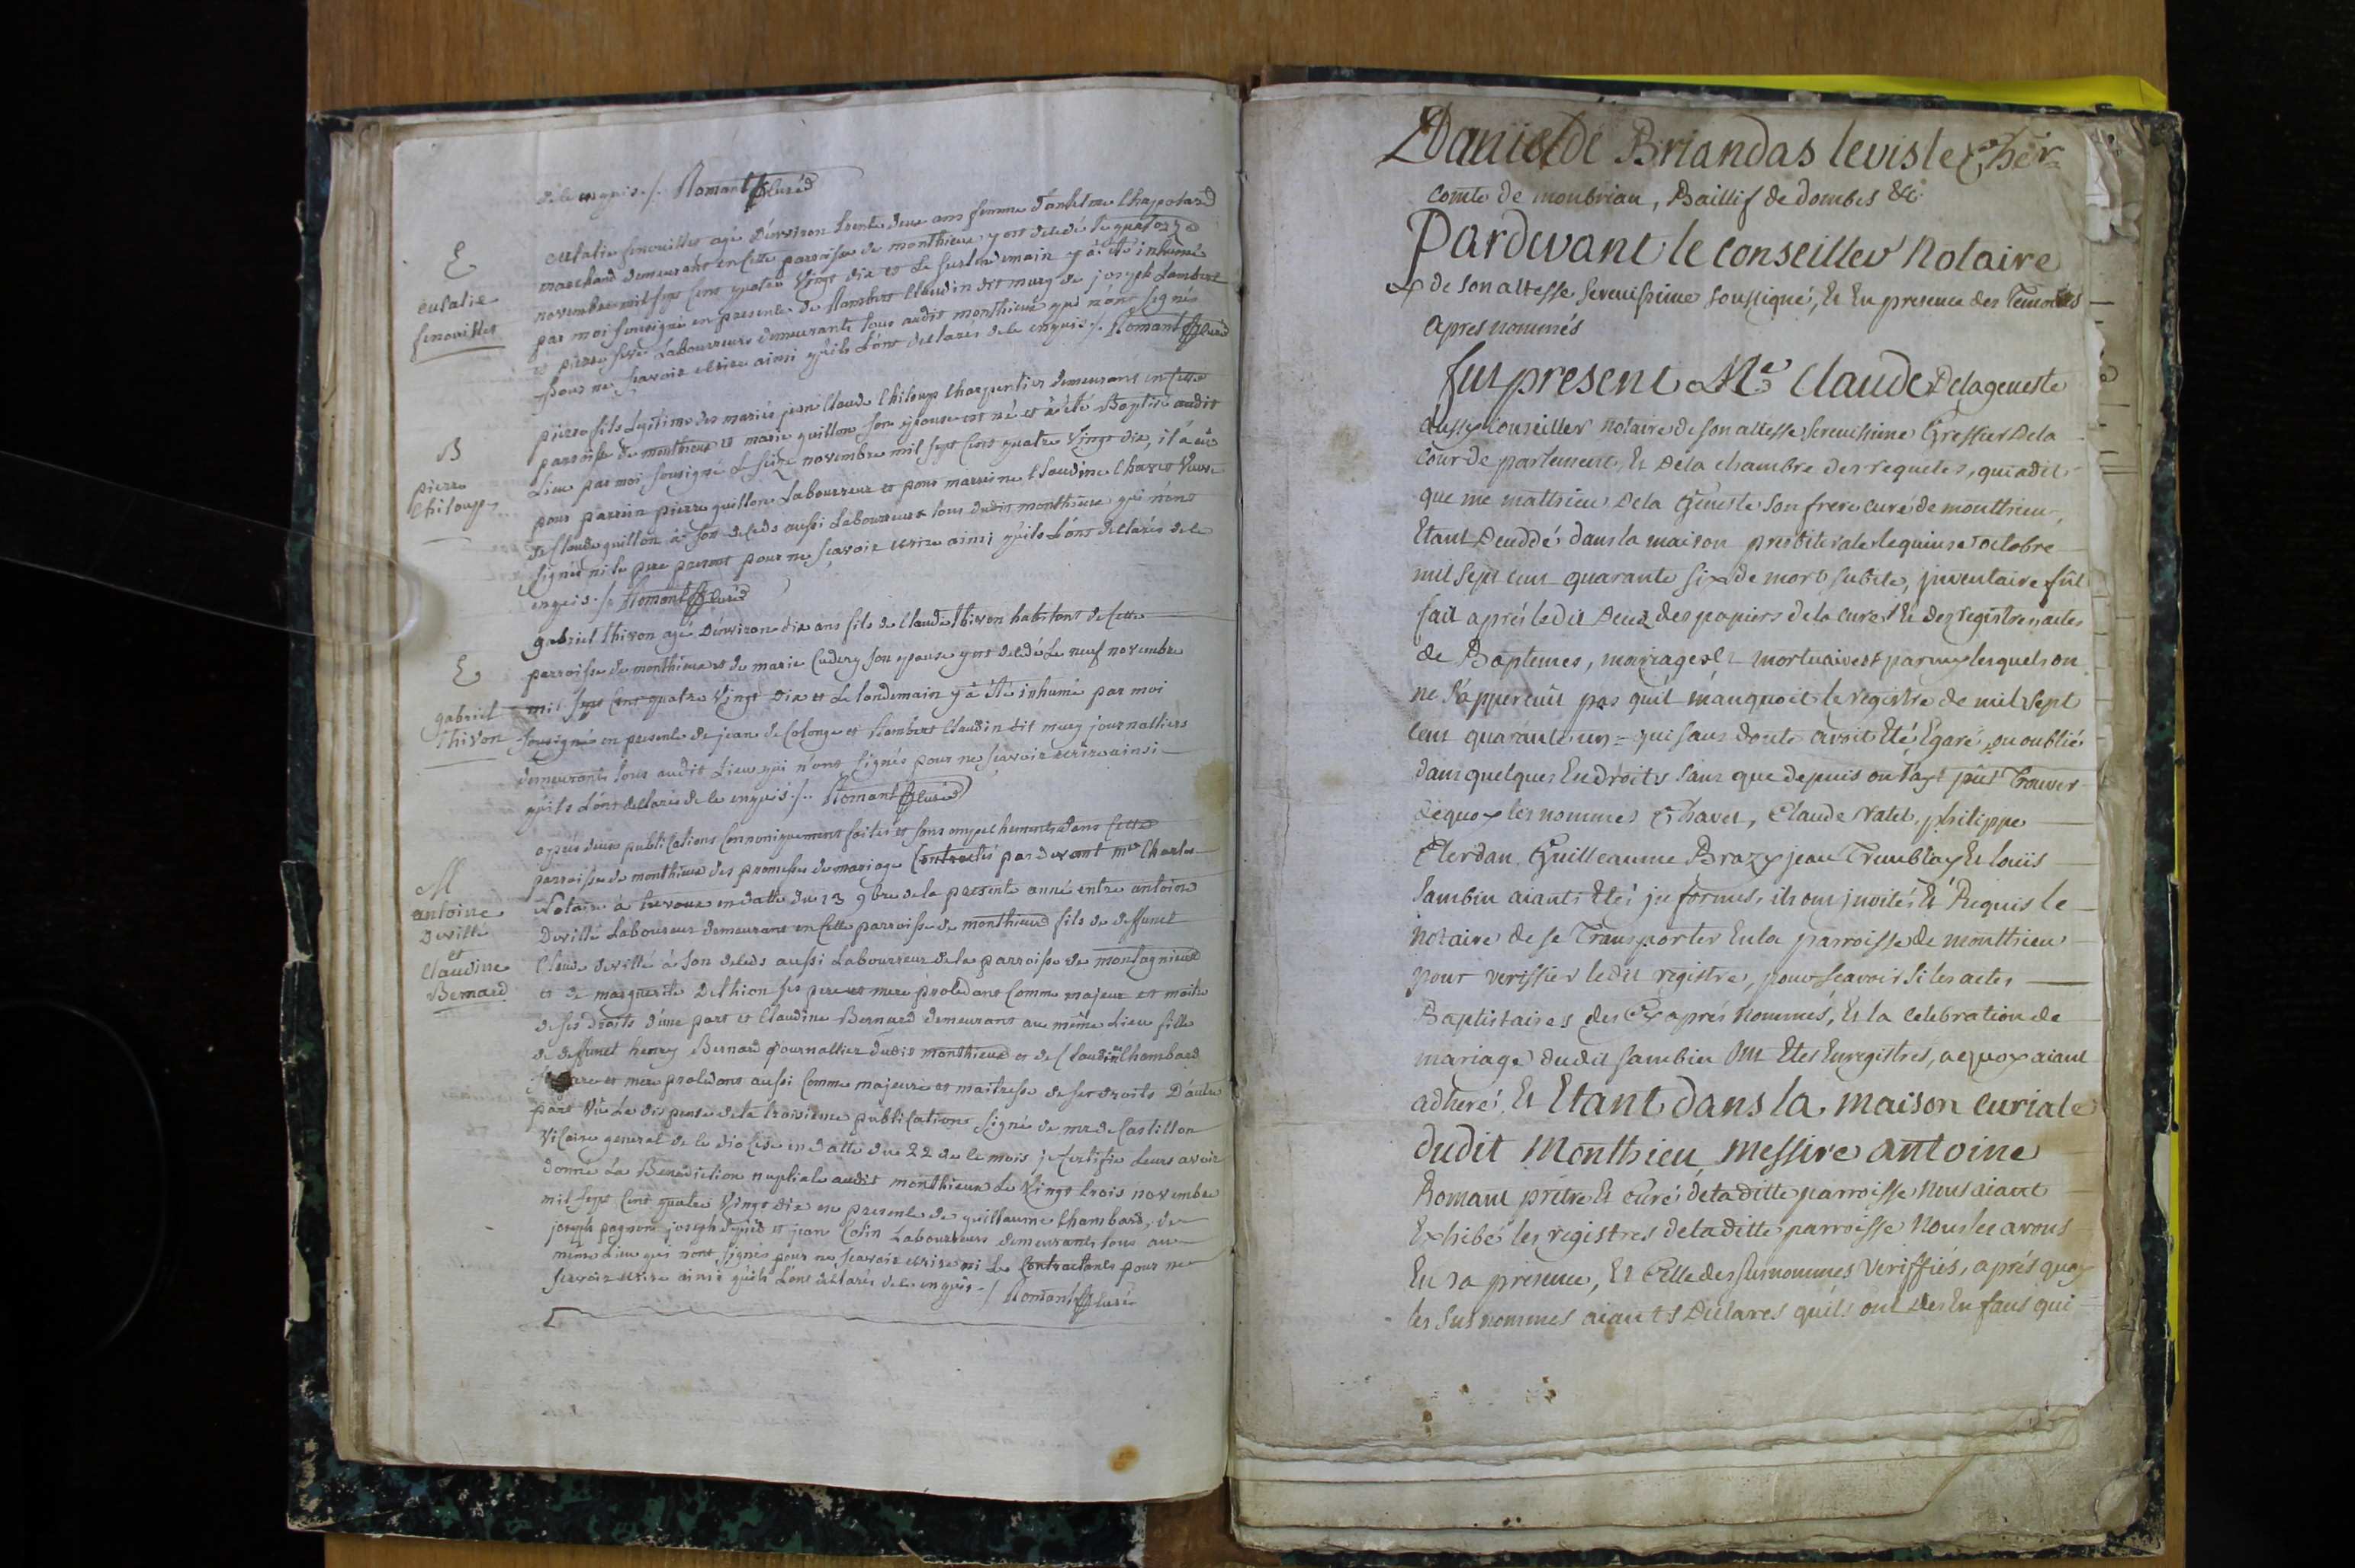 de le enquis ./. Romant Curé
E
eulalie
fenouillet
eulalie fenouillet agé D'environ trente deux ans femme d'antelme Chapotard
marchand demeurant en cette parroisse de monthieux y est decedé le quatorze
novembre mil sept cent quatre Vingt dix et Le surlendemain y à été inhumé
par moi sousigné en presence de Rambert Claudin dit mury de joseph Lambert
et pierre Labourreurs demeurants tous audit monthieux qui n'ont signés
pour ne sçavoir ecrire ainsi qu'ils L'ont declarés de le enquis ./. Romant Curé
B
pierre
Chiloup
pierre fils Legitime des mariés jean Claude Chiloup Charpentier demeurant en cette
parroisse de monthieux et marie guillon son epouse est né et à été Baptisé audit
Lieu par moi sousigné Le seize novembre mil sept Cent quatre Vingt dix, il à eu
pour parrein pierre guillon Labourreur et pour marreine Claudine Charet Veuve
de Claude guillon à son deceds aussi Labourreur tous dudit monthieux qui n'ont
signés ni le pere present pour ne sçavoir ecrire ainsi qu'ils L'ont declarés de le
enquis ./. Romant Curé
E
gabriel
Thivon
gabriel Thivon agé D'environ dix ans fils de Claude Thivon habitant de cette
parroisse de monthieux et de marie Cudery son epouse y est decedé Le neuf novembre
mil sept Cent quatre Vingt Dix et Le landemain y à été inhumé par moi
sousigné en presence de jean de Colonge et Rambert Claudin dit mury journalliers
demeurants tous audit Lieu qui n'ont signés pour ne sçavoir ecrire ainsi
qu'ils L'ont declarés de le enquis ./. Romant Curé
M
antoine
Deville
et
Claudine
Bernard
après deux publications Cannoniquement faites et sans empechements Dans cette
parroisse de monthieux des promesses de mariage Contractés par devant mre Charles
Notaire à trevoux en datte du 13 9bre de la presente anné entre antoine
Deville Laboureur demeurant en cette parroisse de monthieux fils de deffunct
Claude deville à son deceds aussi Labourreur de la parroisse de montagnieux
et de marguerite Delthion ses pere et mere procedant Comme majeur et maitre
de ses Droits d'une part et Claudine Bernard demeurant au même Lieu fille
de deffunct henry Bernard journallier dudit monthieux et de Claudine Chambard
ses pere et mere procedant aussi Comme majeure et maitresse de ses droits D'autre
part Vu La dispense de la troisieme publications signé de mr de Castillon
Vicaire general de le diocese en datte du 22 de le mois je certifie Leurs avoir
donné La Benediction nuptiale audit monthieux Le Vingt trois novembre
mil sept Cent quatre Vingt dix en presence de guillaume Chambard, de
joseph pagnon joseph et jean Colin Labourreurs demeurants tous au
même Lieu qui nont signés pour ne sçavoir ecrire ni Le Contractants pour ne
sçavoir ecrire ainsi quils L'ont declarés de le enquis ./ Romant Curé
Daniel de Briandas leviste Cher
Comte de monbrian, Baillif de dombes &c.
Pardevant le Conseiller Notaire
de Son altesse Serenissime Soussigné, Et En presence des Temoins
apres nommés
fut present Me Claude Delageneste
aussy Conseiller Notaire de Son altesse Serenissime Greffier De la
Cour de parlement, Et De la Chambre des requetes, qui a dit
que me matthieu De la Geneste Son frere Curé de montthieu,
Etant Deceddé dans la maison presbiterale le quinze octobre
mil Sept cent quarante Six de mort Subite, jnventaire fût
fait aprés ledit Deceds des papiers de la cure Et des registres actes
de Baptemes, mariages Et mortuaires parmy lesquels on
ne S'apperçut pas qu'il manquoit le registre de mil Sept
Cent quarante un = qui Sans doute avoit Eté Egaré, ou oublié
dans quelques Endroits Sans que depuis on l'ayt pût Trouver
dequoy les nommés Chavet, Claude Valet, philippe
Clerdan, Guilleaume Brazy jean Tremblay Et Loüis
Sambin aiants Eté jnformés, ils ont jnvités Et Requis le
Notaire de se Transporter En la parroisse de montthieu
pour veriffier ledit registre, pour Scavoir Si les actes
Baptistaires des Cy aprés Nommés, Et la Celebration de
mariage dudit Sambin Ont Etés Enregistrés, a quoy aiant
adheré, Et Etant dans la maison curiale
dudit Monthieu Messire antoine
Romant prêtre Et Curé de laditte parroisse Nous aiant
Exhibé les registres de laditte parroisse Nous les avons
En Sa presence, Et Celle des Susnommés Veriffiés, aprés quoy
les Susnommés aiants Déclarés qu'ils ont des Enfans qui